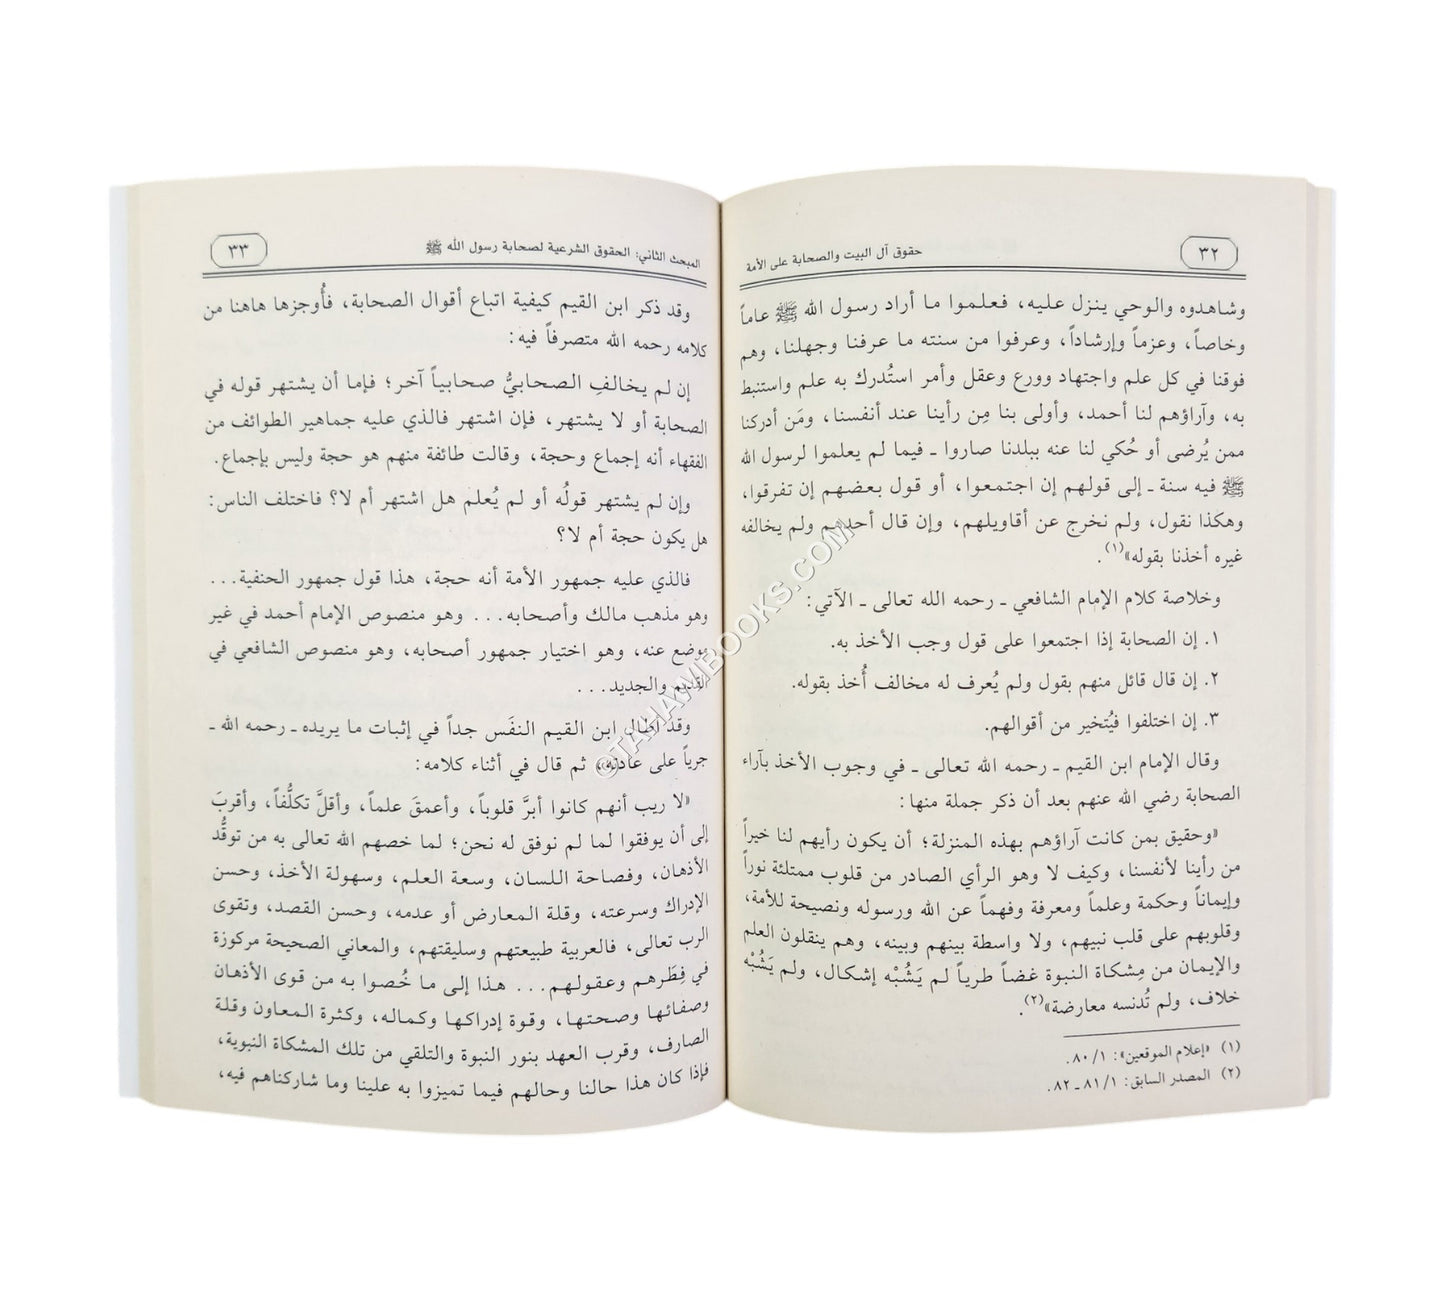 ٣٢
حقوق آل البيت والصحابة على الأمة
وشاهدوه والوحي ينزل عليه، فعلموا ما أراد رسول الله ﷺ عاماً
وخاصاً، وعزماً وإرشاداً، وعرفوا من سنته ما عرفنا وجهلنا، وهم
فوقنا في كل علم واجتهاد وورع وعقل وأمر استُدرك به علم واستنبط
به، وآراؤهم لنا أحمد، وأولى بنا مِن رأينا عند أنفسنا، ومَن أدركنا
ممن يُرضى أو حُكي لنا عنه ببلدنا صاروا ـ فيما لم يعلموا لرسول الله
ﷺ فيه سنة ـ إلى قولهم إن اجتمعوا، أو قول بعضهم إن تفرقوا،
وهكذا نقول، ولم نخرج عن أقاويلهم، وإن قال أحدهم ولم يخالفه
غيره أخذنا بقوله»(١).
وخلاصة كلام الإمام الشافعي ـ رحمه الله تعالى ـ الآتي:
١. إن الصحابة إذا اجتمعوا على قول وجب الأخذ به.
٢. إن قال قائل منهم بقول ولم يُعرف له مخالف أُخذ بقوله.
٣. إن اختلفوا فيُتخير من أقوالهم.
وقال الإمام ابن القيم ـ رحمه الله تعالى ـ في وجوب الأخذ بآراء
الصحابة رضي الله عنهم بعد أن ذكر جملة منها:
«وحقيق بمن كانت آراؤهم بهذه المنزلة؛ أن يكون رأيهم لنا خيراً
من رأينا لأنفسنا، وكيف لا وهو الرأي الصادر من قلوب ممتلئة نوراً
وإيماناً وحكمة وعلماً ومعرفة وفهماً عن الله ورسوله ونصيحة للأمة،
وقلوبهم على قلب نبيهم، ولا واسطة بينهم وبينه، وهم ينقلون العلم
والإيمان من مِشكاة النبوة غضاً طرياً لم يَشُبْه إشكال، ولم يَشُبْه
خلاف، ولم تُدنسه معارضة»(٢).
(١) «إعلام الموقعين»: ٨٠/١.
(٢) المصدر السابق: ٨١/١ ـ ٨٢.
المبحث الثاني: الحقوق الشرعية لصحابة رسول الله ﷺ
٣٣
وقد ذكر ابن القيم كيفية اتباع أقوال الصحابة، فأُوجزها هاهنا من
كلامه رحمه الله متصرفاً فيه:
إن لم يخالفِ الصحابيُّ صحابياً آخر؛ فإما أن يشتهر قوله في
الصحابة أو لا يشتهر، فإن اشتهر فالذي عليه جماهير الطوائف من
الفقهاء أنه إجماع وحجة، وقالت طائفة منهم هو حجة وليس بإجماع.
وإن لم يشتهر قولُه أو لم يُعلم هل اشتهر أم لا؟ فاختلف الناس:
هل يكون حجة أم لا؟
فالذي عليه جمهور الأمة أنه حجة، هذا قول جمهور الحنفية...
وهو مذهب مالك وأصحابه... وهو منصوص الإمام أحمد في غير
موضع عنه، وهو اختيار جمهور أصحابه، وهو منصوص الشافعي في
القديم والجديد...
وقد أطال ابن القيم النفَس جداً في إثبات ما يريده ـ رحمه الله ـ
جرياً على عادته، ثم قال في أثناء كلامه:
«لا ريب أنهم كانوا أبرَّ قلوباً، وأعمقَ علماً، وأقلَّ تكلُّفاً، وأقربَ
إلى أن يوفقوا لما لم نوفق له نحن؛ لما خصهم الله تعالى به من توقُّد
الأذهان، وفصاحة اللسان، وسعة العلم، وسهولة الأخذ، وحسن
الإدراك وسرعته، وقلة المعارض أو عدمه، وحسن القصد، وتقوى
الرب تعالى، فالعربية طبيعتهم وسليقتهم، والمعاني الصحيحة مركوزة
في فِطَرهم وعقولهم... هذا إلى ما خُصوا به من قوى الأذهان
وصفائها وصحتها، وقوة إدراكها وكماله، وكثرة المعاون وقلة
الصارف، وقرب العهد بنور النبوة والتلقي من تلك المشكاة النبوية،
فإذا كان هذا حالنا وحالهم فيما تميزوا به علينا وما شاركناهم فيه،
©TAHAWIBOOKS.COM